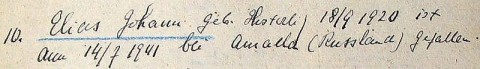 10. Elias Johann geb. 18/9 1920 ist
am 14/7 1941 bei (Russland) gefallen.